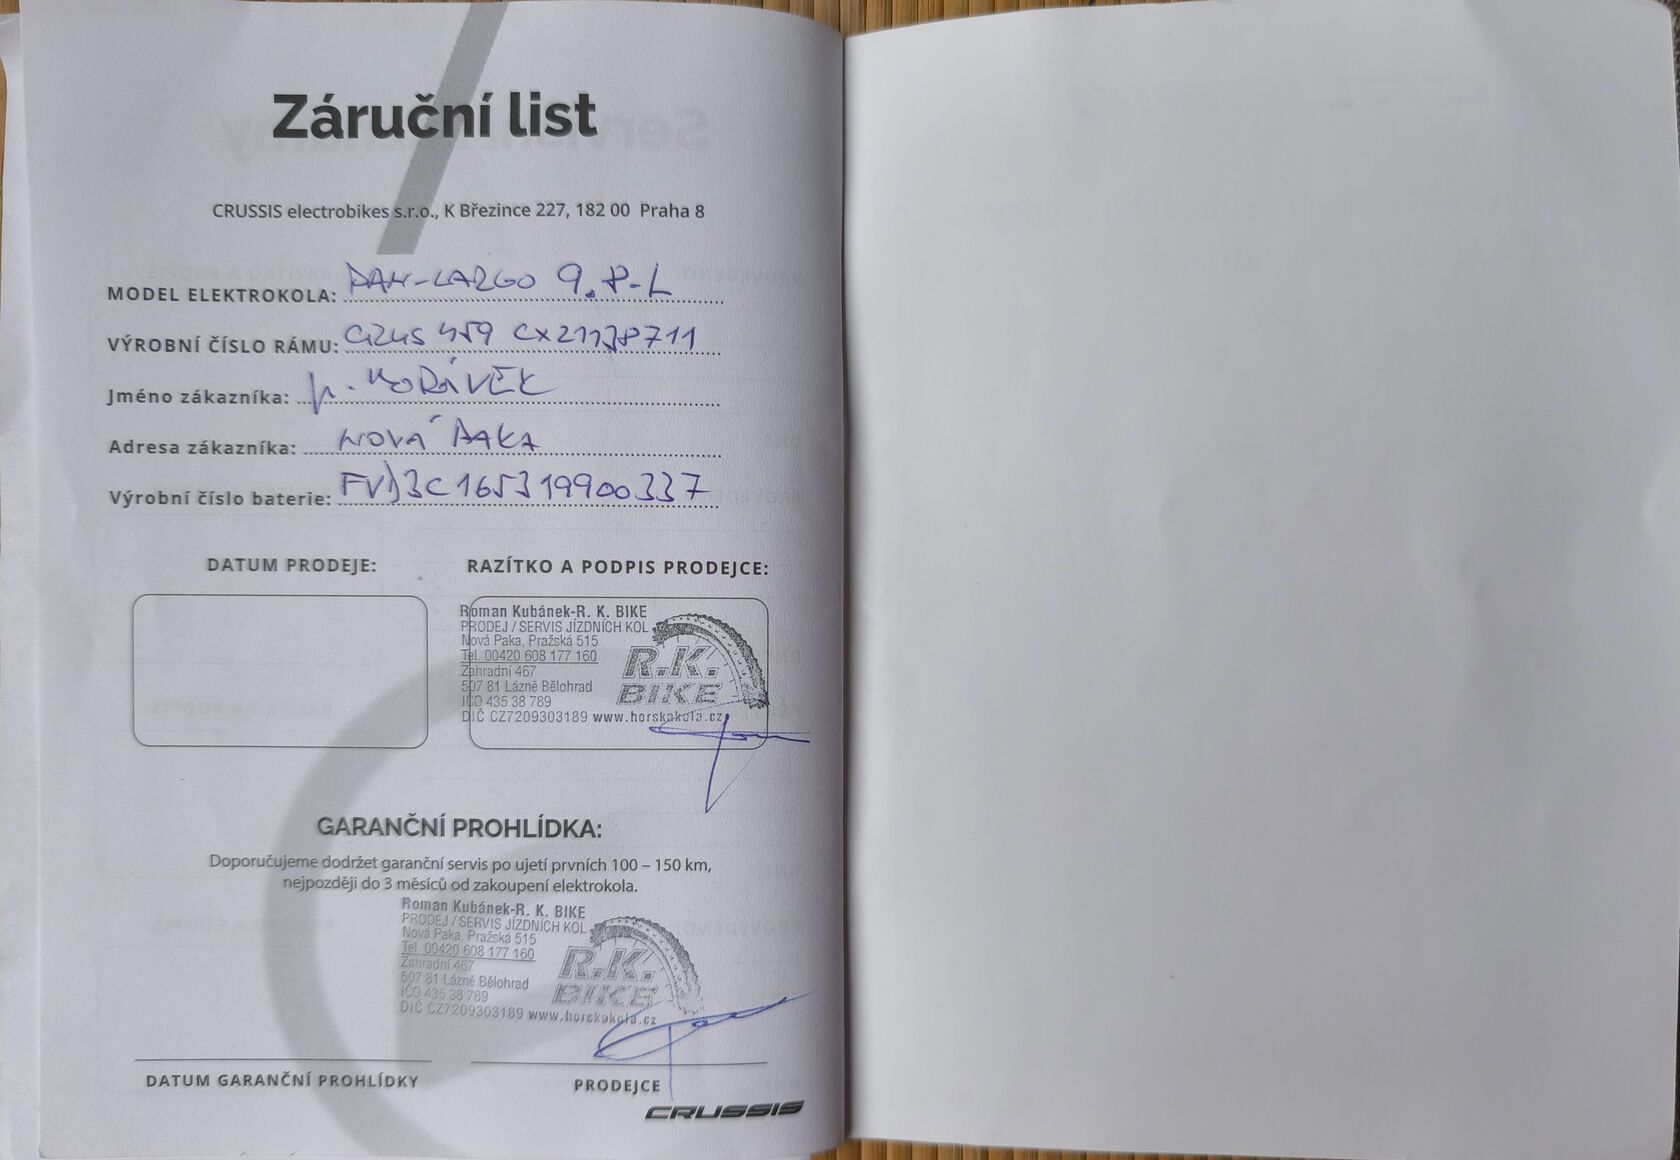 Záruční list
CRUSSIS electrobikes s.r.o., K Březince 227, 182 00 Praha 8
MODEL ELEKTROKOLA: PAN-LARGO 9.8-L
VÝROBNÍ ČÍSLO RÁMU: CX21138711
Jméno zákazníka: p. MORÁVEK
Adresa zákazníka: NOVÁ PAKA
Výrobní číslo baterie: 165319900337
DATUM PRODEJE:
RAZÍTKO A PODPIS PRODEJCE:
Roman Kubánek-R. K. BIKE
PRODEJ / SERVIS JÍZDNÍCH KOL
Nová Paka, Pražská 515
Tel. 00420 608 177 160
Zahradní 467
507 81 Lázně Bělohrad
IČO 435 38 789
DIČ CZ7209303189 www.horskakola.cz
R.K.
BIKE
GARANČNÍ PROHLÍDKA:
Doporučujeme dodržet garanční servis po ujetí prvních 100 – 150 km,
nejpozději do 3 měsíců od zakoupení elektrokola.
Roman Kubánek-R. K. BIKE
PRODEJ / SERVIS JÍZDNÍCH KOL
Nová Paka, Pražská 515
Tel. 00420 608 177 160
Zahradní 467
507 81 Lázně Bělohrad
IČO 435 38 789
DIČ CZ7209303189 www.horskakola.cz
R.K.
BIKE
DATUM GARANČNÍ PROHLÍDKY
PRODEJCE
CRUSSIS